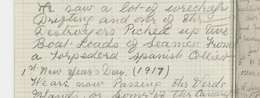 We saw a lot of wreckage
Drifting and one of the
Destroyers Picked up two
Boat Loads of Seamen from
a Torpedoed Spanish Collier
1st New Years Day. (1917)
Years now Passing the Verde
Islands or Some of the